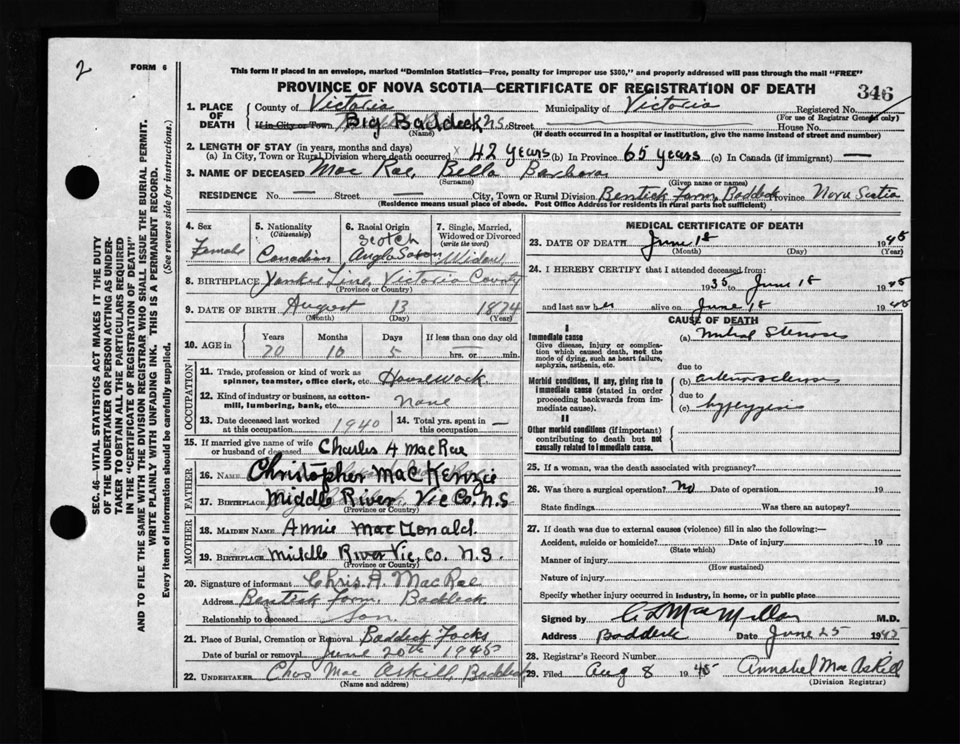 2
FORM 6
This form if placed in an envelope, marked "Dominion Statistics—Free, penalty for improper use $300," and properly addressed will pass through the mail "FREE"
PROVINCE OF NOVA SCOTIA—CERTIFICATE OF REGISTRATION OF DEATH
346
SEC. 46—VITAL STATISTICS ACT MAKES IT THE DUTY
OF THE UNDERTAKER OR PERSON ACTING AS UNDER-
TAKER TO OBTAIN ALL THE PARTICULARS REQUIRED
IN THE "CERTIFICATE OF REGISTRATION OF DEATH"
AND TO FILE THE SAME WITH THE DIVISION REGISTRAR WHO SHALL ISSUE THE BURIAL PERMIT.
WRITE PLAINLY WITH UNFADING INK. THIS IS A PERMANENT RECORD.
Every item of information should be carefully supplied. (See reverse side for instructions.)
1. PLACE OF DEATH
County of Victoria Municipality of Victoria Registered No.
(For use of Registrar General only)
If in City or Town Big Baddeck N.S. Street House No.
(Name) (If death occurred in a hospital or institution, give the name instead of street and number)
2. LENGTH OF STAY (in years, months and days)
(a) In City, Town or Rural Division where death occurred x 42 years (b) In Province 65 years (c) In Canada (if immigrant) —
3. NAME OF DECEASED Mac Rae, Bella Barbara
(Surname) (Given name or names)
RESIDENCE No. — Street — City, Town or Rural Division Bentick Farm, Baddeck Province Nova Scotia
(Residence means usual place of abode. Post Office Address for residents in rural parts not sufficient)
4. Sex
Female
5. Nationality
(Citizenship)
Canadian
6. Racial Origin
Scotch
Anglo Saxon
7. Single, Married, Widowed or Divorced
(write the word)
Widow
8. BIRTHPLACE Yankee Line, Victoria County
(Province or Country)
9. DATE OF BIRTH August 13 1874
(Month) (Day) (Year)
10. AGE in
Years Months Days If less than one day old
70 10 5 hrs. or min.
OCCUPATION
11. Trade, profession or kind of work as
spinner, teamster, office clerk, etc. Housework
12. Kind of industry or business, as cotton-
mill, lumbering, bank, etc. None
13. Date deceased last worked
at this occupation 1940
14. Total yrs. spent in
this occupation —
15. If married give name of wife
or husband of deceased Charles A MacRae
FATHER
16. Name Christopher MacKenzie
17. Birthplace Middle River Vic Co. N.S
MOTHER
18. MAIDEN NAME Annie MacDonald
19. BIRTHPLACE Middle River Vic. Co. N.S.
(Province or Country)
20. Signature of informant Chris A. MacRae
Address Bentick Farm, Baddeck
Relationship to deceased Son
21. Place of Burial, Cremation or Removal Baddeck Forks
Date of burial or removal June 20th 1945
22. UNDERTAKER Chas Mac Askill, Baddeck
(Name and address)
MEDICAL CERTIFICATE OF DEATH
23. DATE OF DEATH June 18 1945
(Month) (Day) (Year)
24. I HEREBY CERTIFY that I attended deceased from:
1935 to June 18 1945
and last saw her alive on June 18 1945
CAUSE OF DEATH
I
Immediate cause
Give disease, injury or complica-
tion which caused death, not the
mode of dying, such as heart failure,
asphyxia, asthenia, etc.
(a) mitral Stenosis
due to
Morbid conditions, if any, giving rise to
immediate cause (stated in order
proceeding backwards from im-
mediate cause).
(b) arteriosclerosis
due to
(c)
II
Other morbid conditions (if important)
contributing to death but not
causally related to immediate cause.
25. If a woman, was the death associated with pregnancy?
26. Was there a surgical operation? No Date of operation 19
State findings Was there an autopsy?
27. If death was due to external causes (violence) fill in also the following:—
Accident, suicide or homicide? Date of injury 19
(State which)
Manner of injury
(How sustained)
Nature of injury
Specify whether injury occurred in industry, in home, or in public place
Signed by C L MacMillan M.D.
Address Baddeck Date June 25 194
28. Registrar's Record Number
29. Filed Aug 8 1945 Annabel Mac Askill
(Division Registrar)